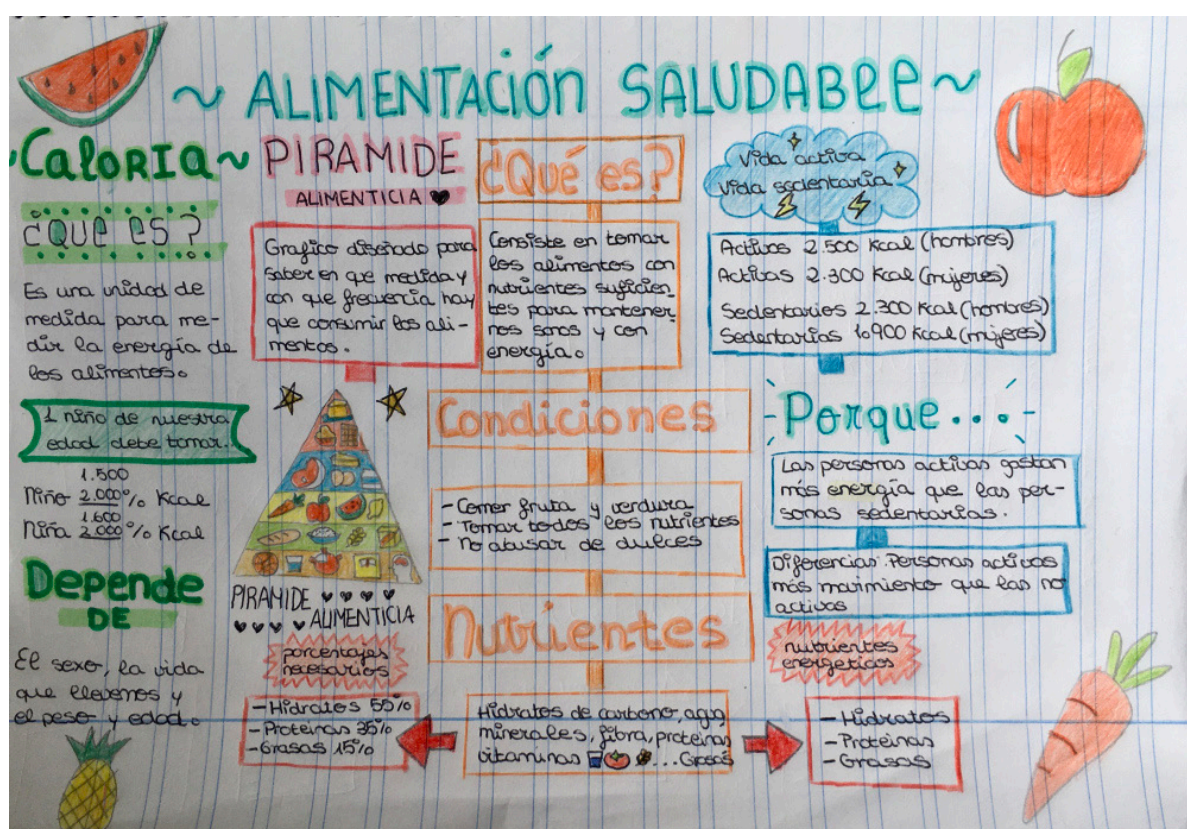 ~ ALIMENTACIÓN SALUDABLE ~
~CALORIA~
¿QUE ES?
Es una unidad de
medida para me-
dir la energía de
los alimentos.
1 niño de nuestra
edad debe tomar.
1.500
Niño 2.000% Kcal
1.600
Niña 2.000% Kcal
Depende
DE
El sexo, la vida
que llevemos y
el peso y edad.
PIRAMIDE
ALIMENTICIA
Grafico diseñado para
saber en que medida y
con que frecuencia hay
que consumir los ali-
mentos.
PIRAMIDE
ALIMENTICIA
porcentajes
necesarios
-Hidratos 55%
-Proteinas 35%
-Grasas 15%
¿Qué es?
Consiste en tomar
los alimentos con
nutrientes suficien-
tes para mantener
nos sanos y con
energía.
Condiciones
- Comer fruta y verdura
- Tomar todos los nutrientes
- No abusar de dulces
Nutrientes
Hidratos de carbono, agua,
minerales, fibra, proteinas
vitaminas ... Grasas
Vida activa
Vida sedentaria
Activos 2.500 Kcal (hombres)
Activas 2.300 Kcal (mujeres)
Sedentarios 2.300 Kcal (hombres)
Sedentarias 1.900 Kcal (mujeres)
-Porque...-
Las personas activas gastan
más energía que las per-
sonas sedentarias.
Diferencias: Personas activas
más movimiento que las no
activas
nutrientes
energeticos
- Hidratos
- Proteinas
- Grasas